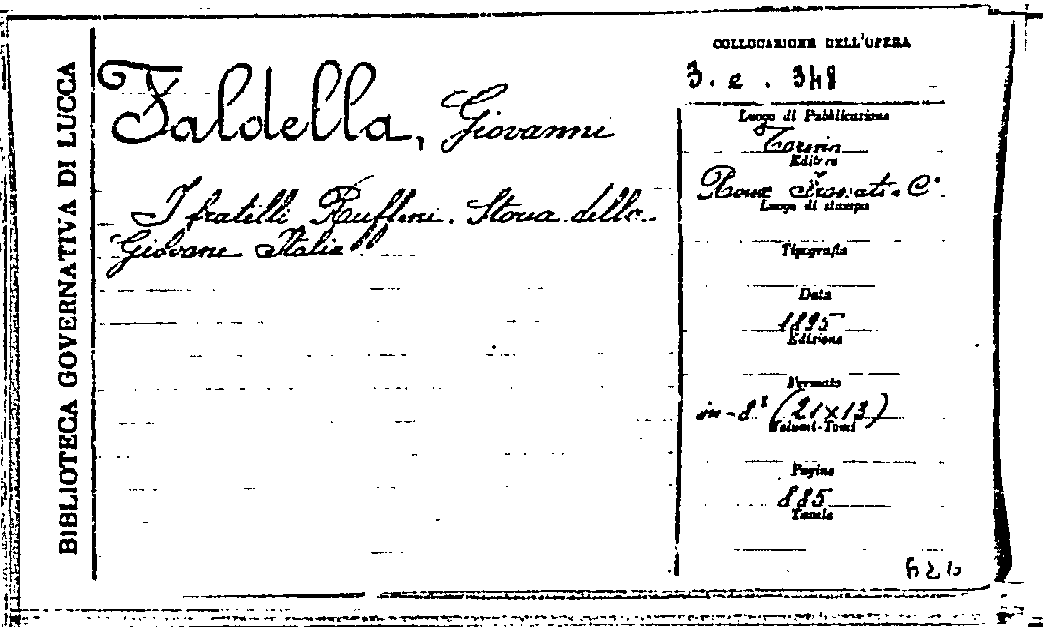 BIBLIOTECA GOVERNATIVA DI LUCCA
Faldella, Giovanni
I fratelli Ruffini. Storia della
Giovane Italia
COLLOCAZIONE DELL'OPERA
3. e. 348
Luogo di Pubblicazione
Torino
Editore
Roux Frassati e Cº
Luogo di stampa
Tipografia
Data
1895
Edizione
Formato
in-8º (21x13)
Volumi-Tomi
Pagine
885
Tavole